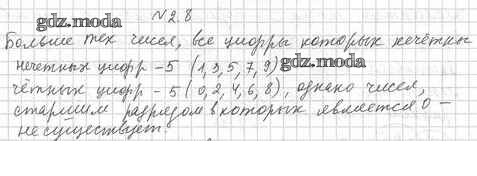 № 2.8
gdz.moda
Больше тех чисел, все цифры которых нечётны
нечетных цифр – 5 (1, 3, 5, 7, 9) gdz.moda
чётных цифр – 5 (0, 2, 4, 6, 8), однако чисел,
старшим разрядом в которых является 0 –
не существует.